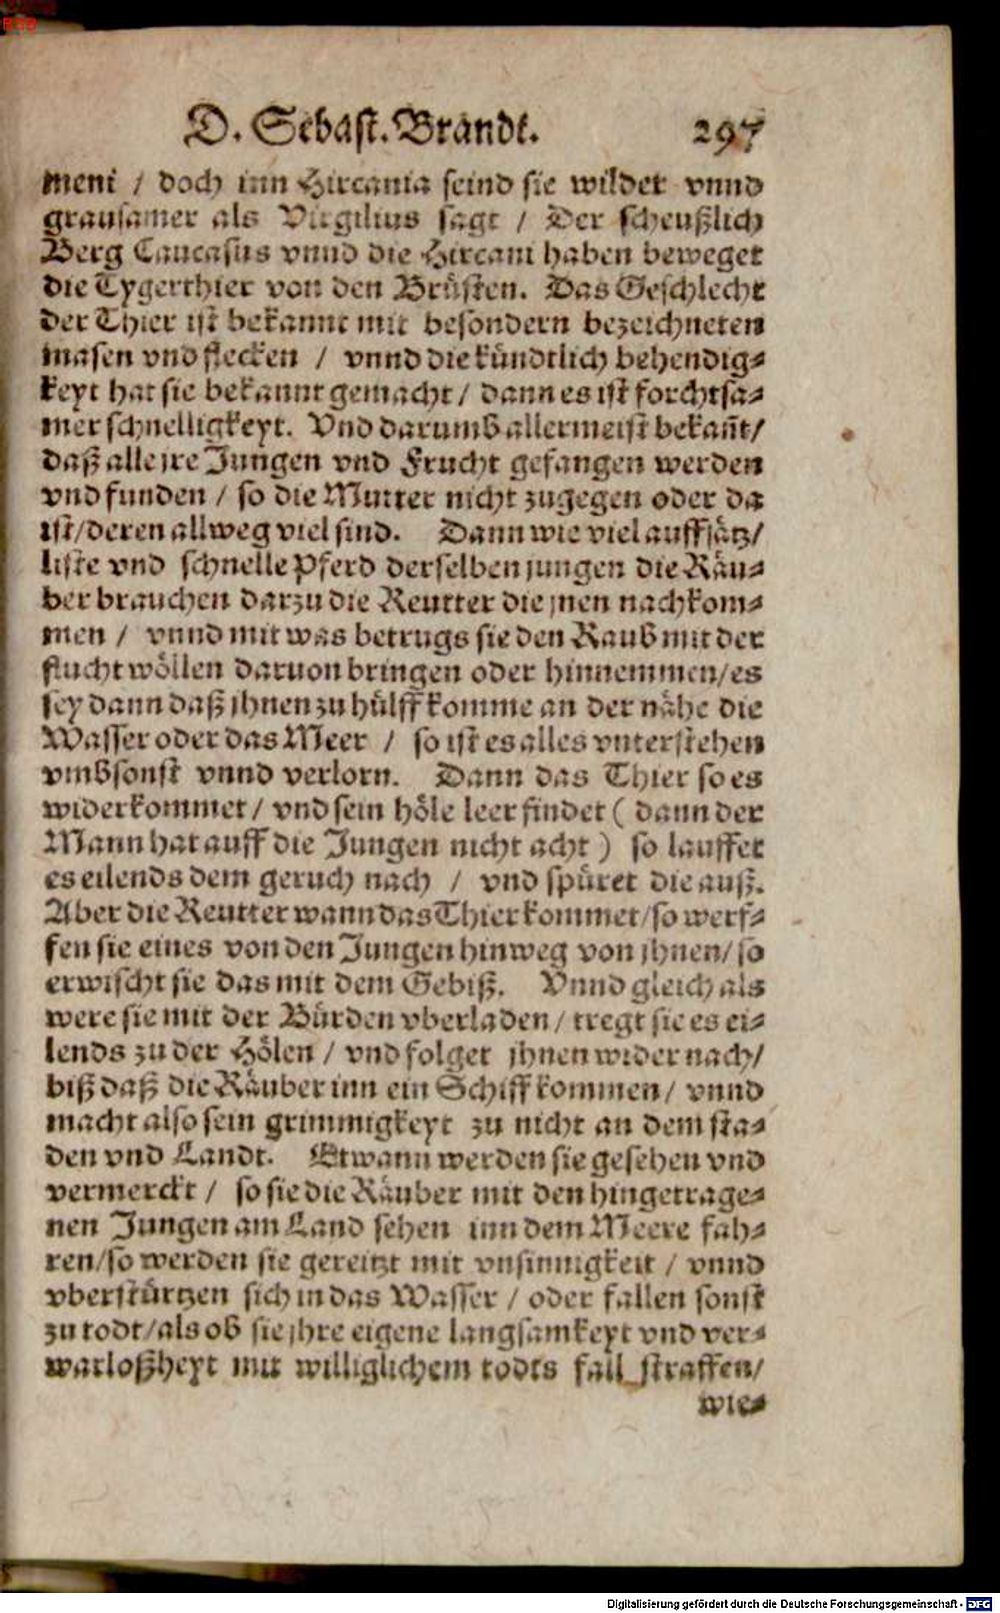 D. Sebast. Brandt. 297
meni / doch inn Hircania seind sie wilder vnnd
grausamer als Virgilius sagt / Der scheußlich
Berg Caucasus vnnd die Hircani haben beweget
die Tygerthier von den Brüsten. Das Geschlecht
der Thier ist bekannt mit besondern bezeichneten
masen vnd flecken / vnnd die kündtlich behendig-
keyt hat sie bekannt gemacht / dann es ist forchtsa-
mer schnelligkeyt. Vnd darumb allermeist bekañt/
daß alle jre Jungen vnd Frucht gefangen werden
vnd funden / so die Mutter nicht zugegen oder da
ist/deren allweg viel sind. Dann wie viel auffsätz/
liste vnd schnelle Pferd derselben jungen die Räu-
ber brauchen darzu die Reutter die jnen nachkom-
men / vnnd mit was betrugs sie den Raub mit der
flucht wöllen daruon bringen oder hinnemmen/es
sey dann daß jhnen zu hülff komme an der nähe die
Wasser oder das Meer / so ist es alles vnterstehen
vmbsonst vnnd verlorn. Dann das Thier so es
widerkommet / vnd sein höle leer findet ( dann der
Mann hat auff die Jungen nicht acht ) so lauffet
es eilends dem geruch nach / vnd spüret die auß.
Aber die Reutter wann das Thier kommet/so werf-
fen sie eines von den Jungen hinweg von jhnen/ so
erwischt sie das mit dem Gebiß. Vnnd gleich als
were sie mit der Bürden vberladen / tregt sie es ei-
lends zu der Hölen / vnd folget jhnen wider nach/
biß daß die Räuber inn ein Schiff kommen / vnnd
macht also sein grimmigkeyt zu nicht an dem sta-
den vnd Landt. Etwann werden sie gesehen vnd
vermerckt / so sie die Räuber mit den hingetrage-
nen Jungen am Land sehen inn dem Meere fah-
ren/so werden sie gereitzt mit vnsinnigkeit / vnnd
vberstürtzen sich in das Wasser / oder fallen sonst
zu todt/als ob sie jhre eigene langsamkeyt vnd ver-
warloßheyt mit williglichem todts fall straffen/
wie-
Digitalisierung gefördert durch die Deutsche Forschungsgemeinschaft - DFG